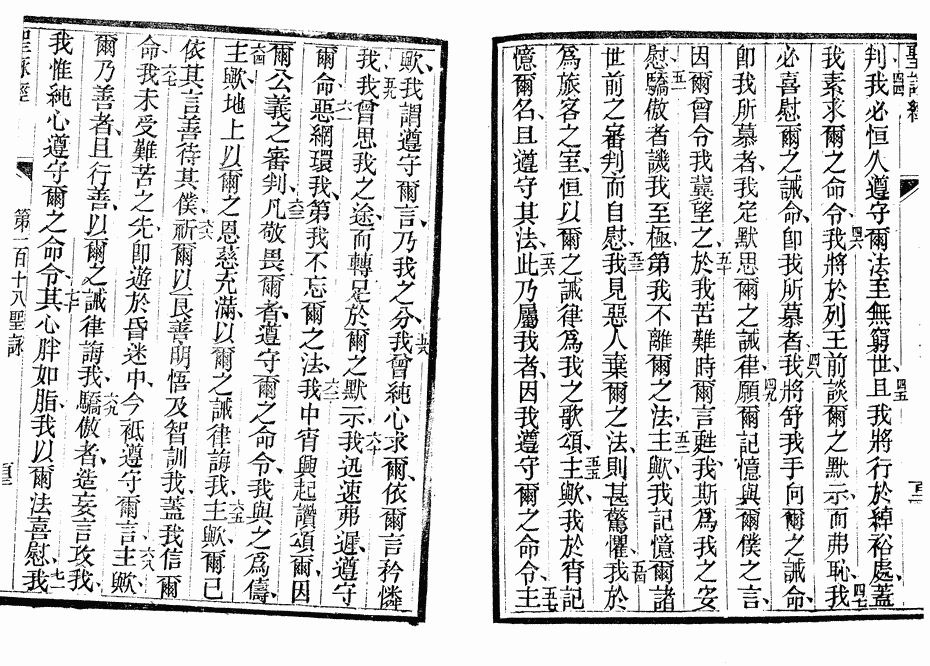 聖詠經
判我必恒久遵守爾法至無窮世、四五且我將行於綽裕處、蓋
我素求爾之命令、四六我將於列王前談爾之默示而弗恥、四七我
必喜慰爾之誡命、卽我所慕者、四八我將舒我手向爾之誡命、
卽我所慕者、我定默思爾之誡律、四九願爾記憶與爾僕之言、
因爾曾令我冀望之、五十於我苦難時爾言甦我、斯爲我之安
慰、五一驕傲者譏我至極、第我不離爾之法、五二主歟、我記憶爾諸
世前之審判而自慰、五三我見惡人棄爾之法、則甚驚懼、五四我於
爲旅客之室、恒以爾之誡律爲我之歌頌、五五主歟、我於宵記
憶爾名、且遵守其法、五六此乃屬我者、因我遵守爾之命令、五七主
歟、我謂遵守爾言、乃我之分、五八我曾純心求爾、依爾言矜憐
我、五九我曾思我之途、而轉足於爾之默示、六十我迅速弗遲遵守
爾命、六一惡網環我、第我不忘爾之法、六二我中宵興起讚頌爾、因
爾公義之審判、六三凡敬畏爾者、遵守爾之命令、我與之爲儔、
六四主歟、地上以爾之恩慈充滿、以爾之誡律誨我、六五主歟、爾已
依其言善待其僕、六六祈爾以良善明悟及智訓我、蓋我信爾
命、六七我未受難苦之先、卽遊於昏迷中、今祗遵守爾言、六八主歟、
爾乃善者、且行善、以爾之誡律誨我、六九驕傲者造妄言攻我、
我惟純心遵守爾之命令、七十其心胖如脂、我以爾法喜慰、七一我
聖詠經
第一百十八聖詠